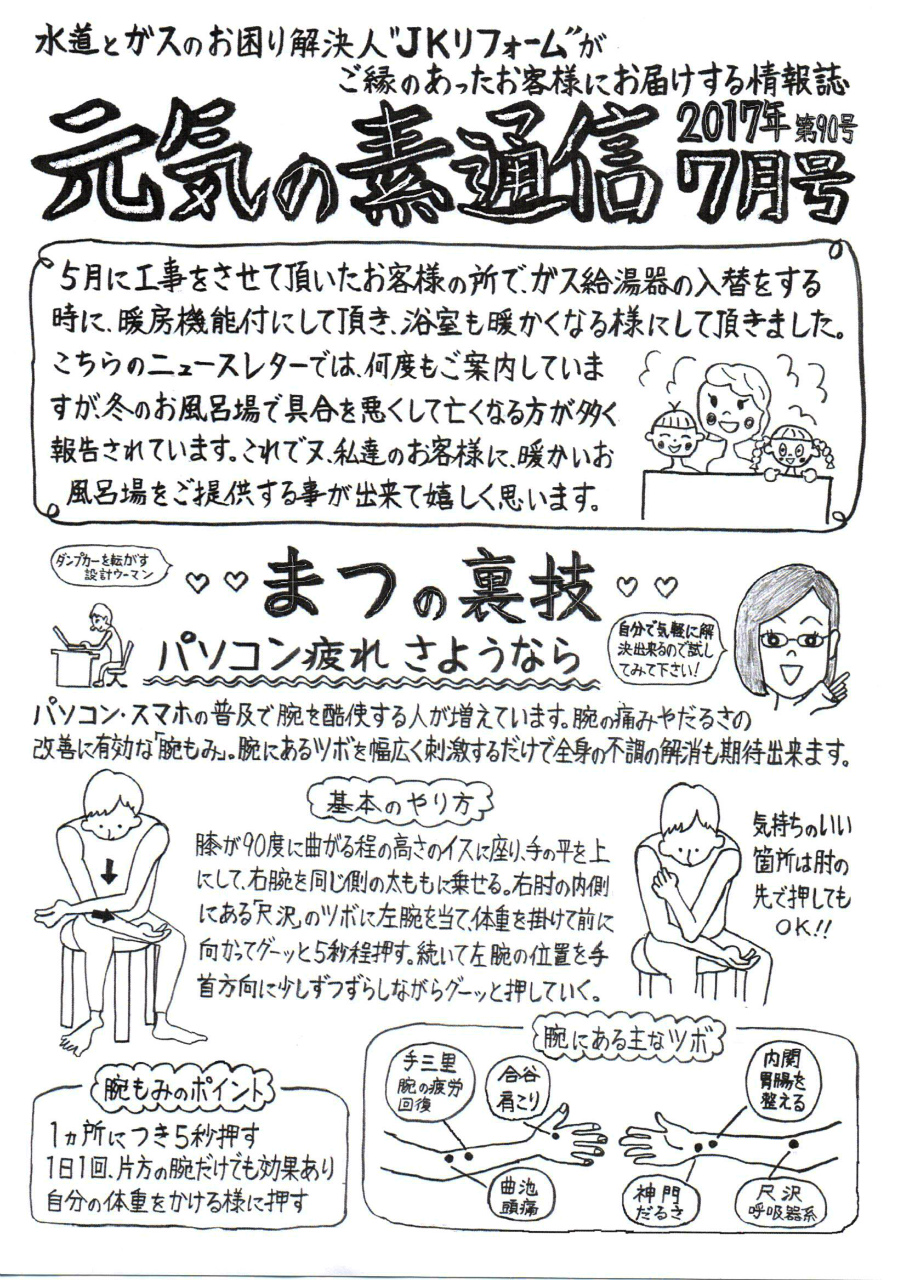 水道とガスのお困り解決人"JKリフォーム"が
ご縁のあったお客様にお届けする情報誌
元気の素通信
2017年 第90号
7月号
5月に工事をさせて頂いたお客様の所で、ガス給湯器の入替をする
時に、暖房機能付にして頂き、浴室も暖かくなる様にして頂きました。
こちらのニュースレターでは、何度もご案内していま
すが、冬のお風呂場で具合を悪くして亡くなる方が多く
報告されています。これで又、私達のお客様に、暖かいお
風呂場をご提供する事が出来て嬉しく思います。
ダンプカーを転がす
設計ウーマン
♡♡ まつの裏技 ♡♡
パソコン疲れ さようなら
自分で気軽に解
決出来るので試し
てみて下さい!
パソコン・スマホの普及で腕を酷使する人が増えています。腕の痛みやだるさの
改善に有効な「腕もみ」。腕にあるツボを幅広く刺激するだけで全身の不調の解消も期待出来ます。
基本のやり方
膝が90度に曲がる程の高さのイスに座り、手の平を上
にして、右腕を同じ側の太ももに乗せる。右肘の内側
にある「尺沢」のツボに左腕を当て、体重を掛けて前に
向かってグーッと5秒程押す。続いて左腕の位置を手
首方向に少しずつずらしながらグーッと押していく。
気持ちのいい
箇所は肘の
先で押しても
OK!!
腕もみのポイント
1ヵ所につき5秒押す
1日1回、片方の腕だけでも効果あり
自分の体重をかける様に押す
腕にある主なツボ
手三里
腕の疲労
回復
合谷
肩こり
曲池
頭痛
内関
胃腸を
整える
神門
だるさ
尺沢
呼吸器系